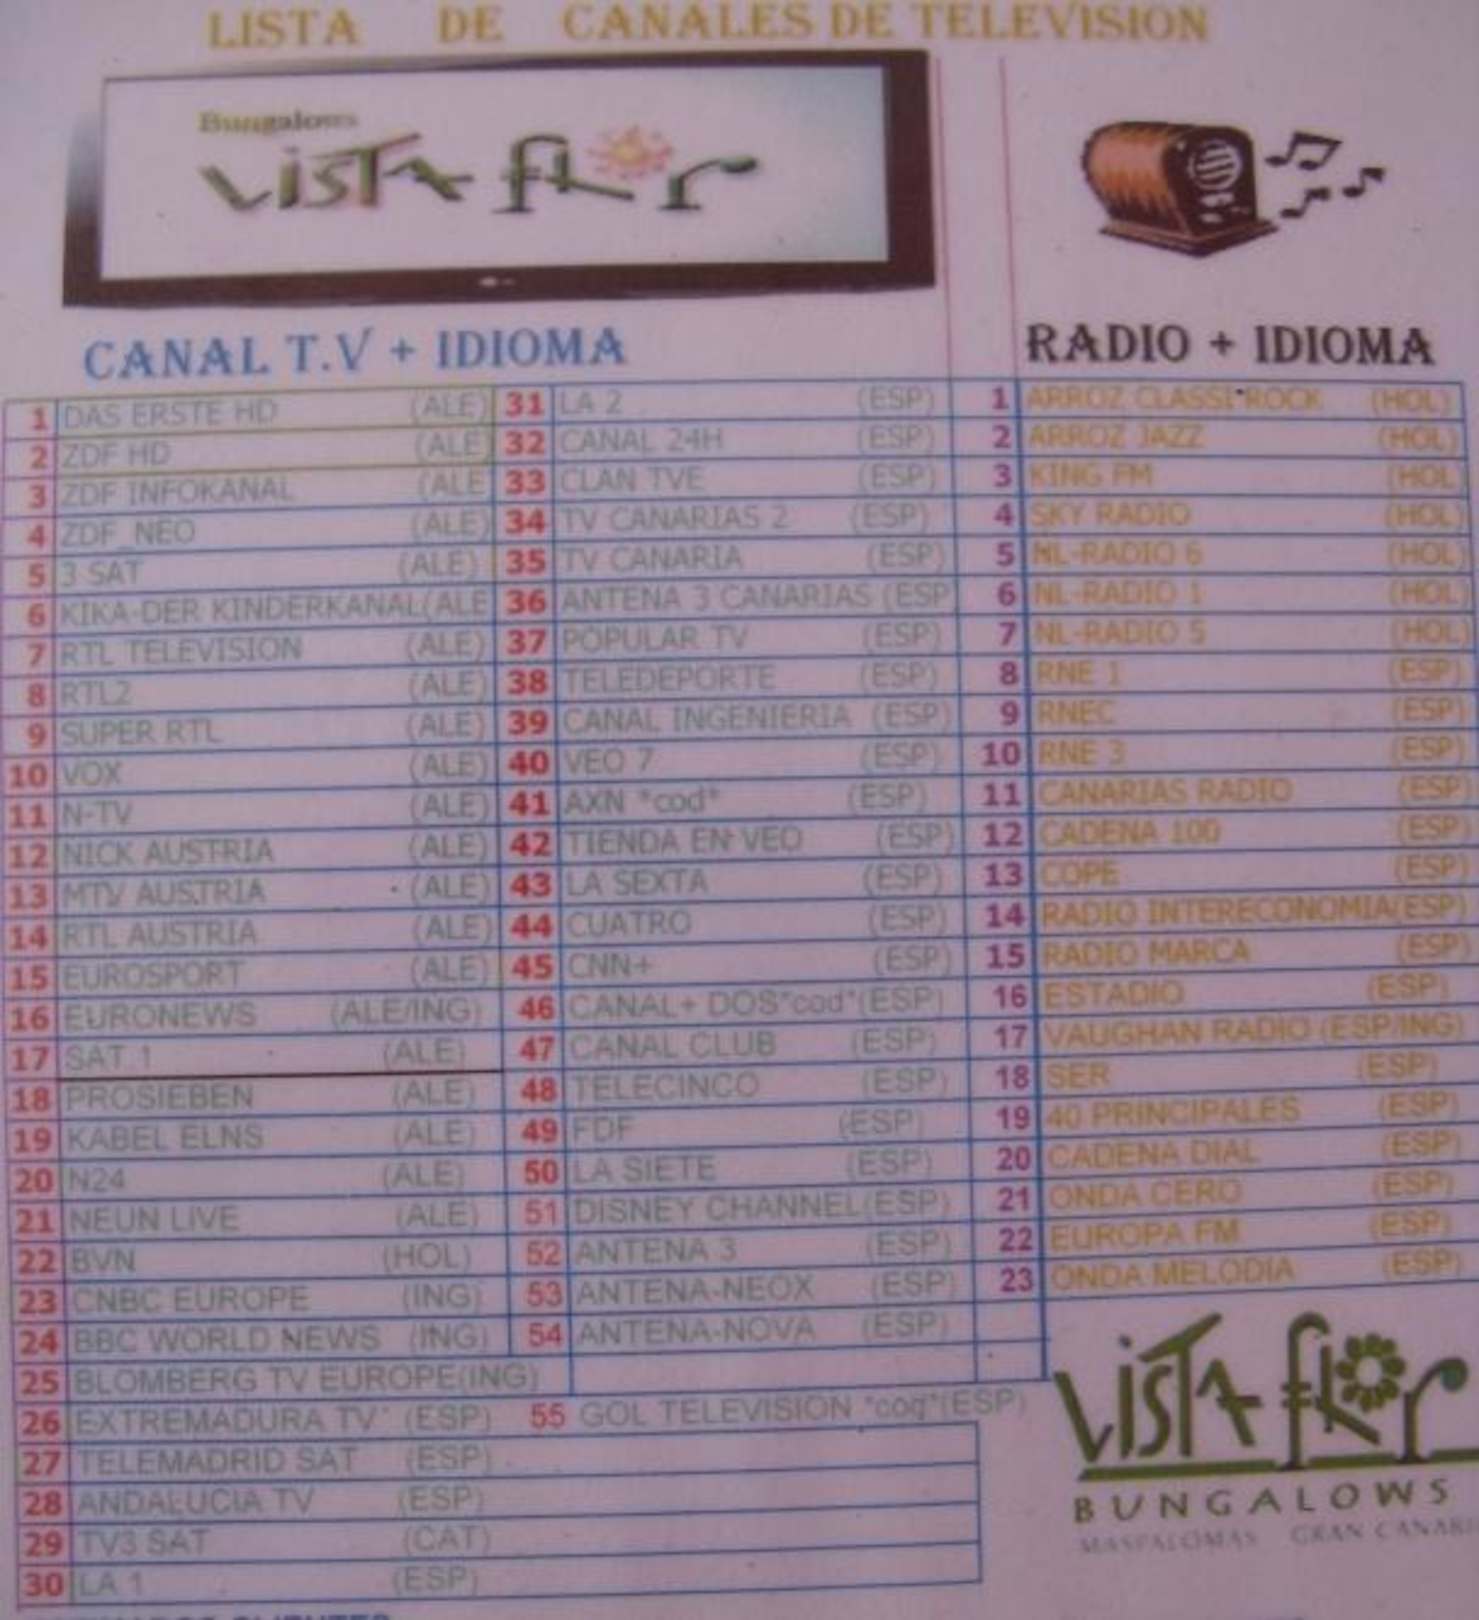 LISTA DE CANALES DE TELEVISION
Bungalows
VISTA flor
CANAL T.V + IDIOMA
1 DAS ERSTE HD (ALE)
2 ZDF HD (ALE
3 ZDF INFOKANAL (ALE
4 ZDF_NEO (ALE)
5 3 SAT (ALE)
6 KIKA-DER KINDERKANAL(ALE
7 RTL TELEVISION (ALE)
8 RTL2 (ALE)
9 SUPER RTL (ALE)
10 VOX (ALE)
11 N-TV (ALE)
12 NICK AUSTRIA (ALE)
13 MTV AUSTRIA (ALE)
14 RTL AUSTRIA (ALE)
15 EUROSPORT (ALE)
16 EURONEWS (ALE/ING)
17 SAT 1 (ALE)
18 PROSIEBEN (ALE)
19 KABEL ELNS (ALE)
20 N24 (ALE)
21 NEUN LIVE (ALE)
22 BVN (HOL)
23 CNBC EUROPE (ING)
24 BBC WORLD NEWS (ING)
25 BLOMBERG TV EUROPE(ING)
26 EXTREMADURA TV (ESP)
27 TELEMADRID SAT (ESP)
28 ANDALUCIA TV (ESP)
29 TV3 SAT (CAT)
30 LA 1 (ESP)
31 LA 2 (ESP)
32 CANAL 24H (ESP)
33 CLAN TVE (ESP)
34 TV CANARIAS 2 (ESP)
35 TV CANARIA (ESP)
36 ANTENA 3 CANARIAS (ESP
37 POPULAR TV (ESP)
38 TELEDEPORTE (ESP)
39 CANAL INGENIERIA (ESP)
40 VEO 7 (ESP)
41 AXN *cod* (ESP)
42 TIENDA EN VEO (ESP)
43 LA SEXTA (ESP)
44 CUATRO (ESP)
45 CNN+ (ESP)
46 CANAL+ DOS*cod*(ESP)
47 CANAL CLUB (ESP)
48 TELECINCO (ESP)
49 FDF (ESP)
50 LA SIETE (ESP)
51 DISNEY CHANNEL(ESP)
52 ANTENA 3 (ESP)
53 ANTENA-NEOX (ESP)
54 ANTENA-NOVA (ESP)
55 GOL TELEVISION *coq*(ESP)
RADIO + IDIOMA
1 ARROZ CLASSI ROCK (HOL)
2 ARROZ JAZZ (HOL)
3 KING FM (HOL
4 SKY RADIO (HOL)
5 NL-RADIO 6 (HOL)
6 NL-RADIO 1 (HOL)
7 NL-RADIO 5 (HOL)
8 RNE 1 (ESP)
9 RNEC (ESP)
10 RNE 3 (ESP)
11 CANARIAS RADIO (ESP)
12 CADENA 100 (ESP)
13 COPE (ESP)
14 RADIO INTERECONOMIA(ESP)
15 RADIO MARCA (ESP)
16 ESTADIO (ESP)
17 VAUGHAN RADIO (ESP/ING)
18 SER (ESP)
19 40 PRINCIPALES (ESP)
20 CADENA DIAL (ESP)
21 ONDA CERO (ESP)
22 EUROPA FM (ESP)
23 ONDA MELODIA (ESP)
VISTA flor
BUNGALOWS
MASPALOMAS GRAN CANARI